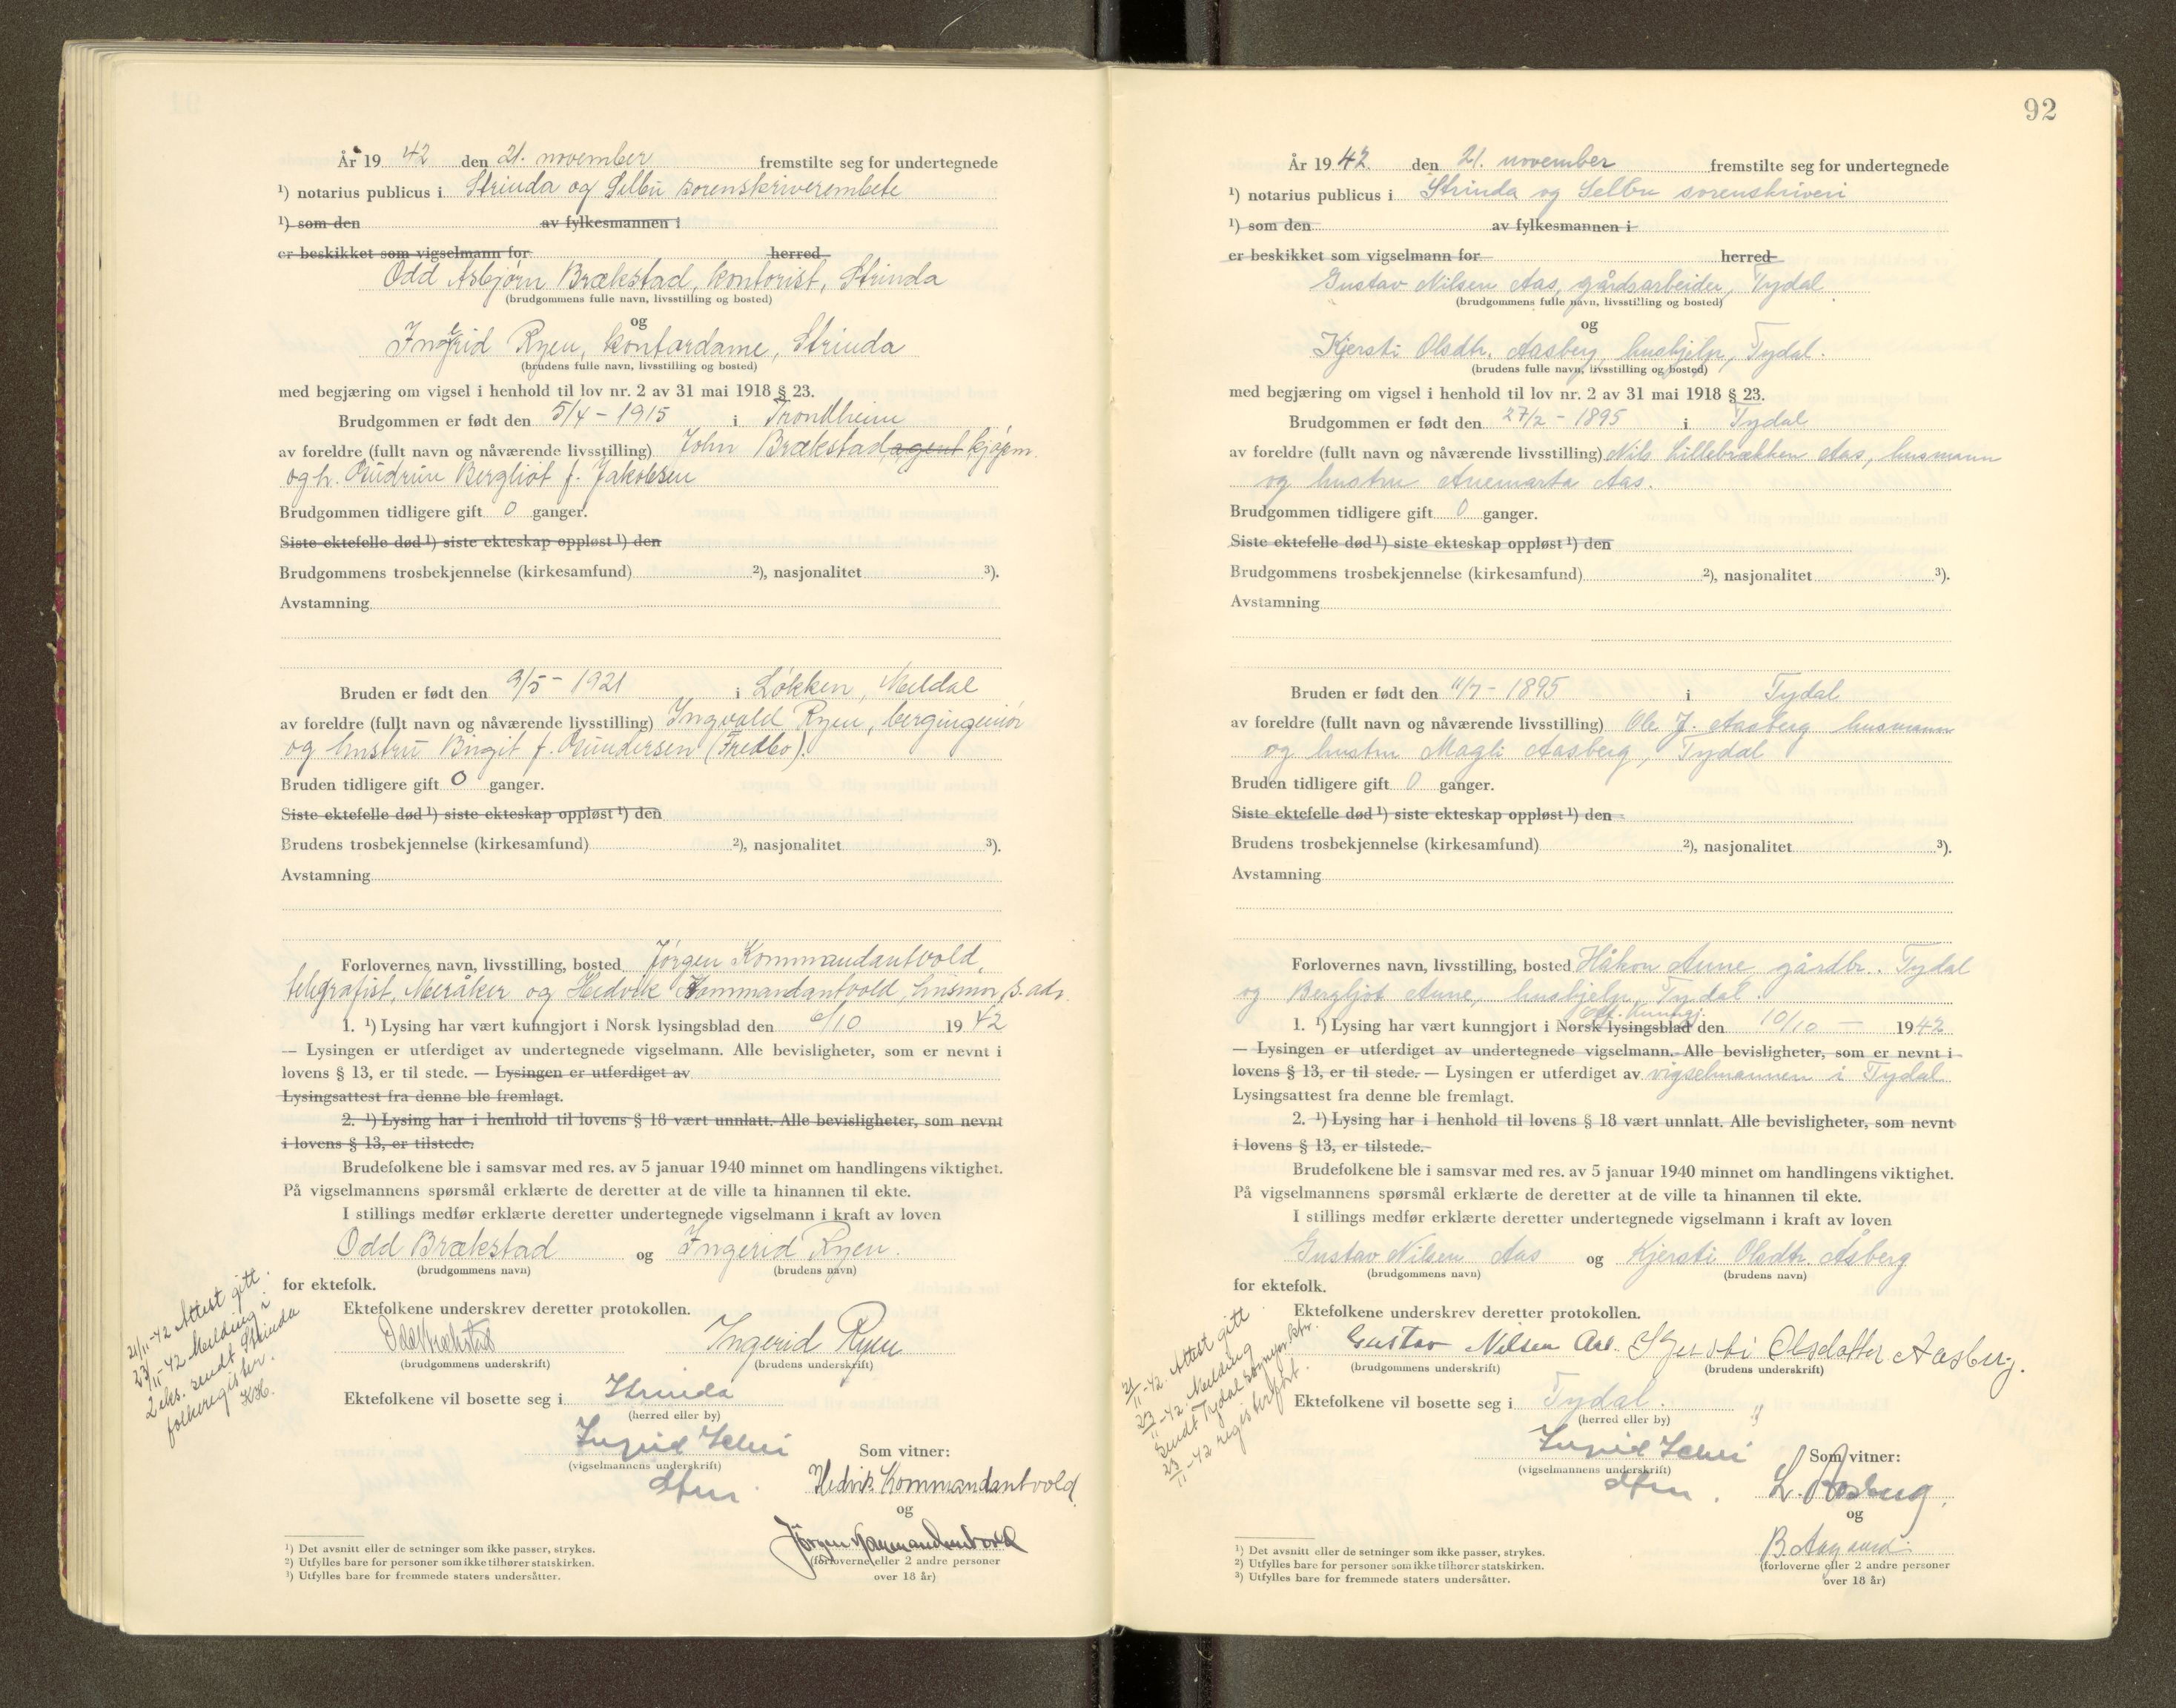 År 19 42 den 21. november fremstilte seg for undertegnede
¹) notarius publicus i Strinda og Selbu sorenskriverembete
¹) som den av fylkesmannen i
er beskikket som vigselmann for herred
Odd Asbjørn Brækstad, kontorist, Strinda
(brudgommens fulle navn, livsstilling og bosted)
og
Ingerid Ryen, kontordame, Strinda
(brudens fulle navn, livsstilling og bosted)
med begjæring om vigsel i henhold til lov nr. 2 av 31 mai 1918 § 23.
Brudgommen er født den 5/4 - 1915 i Trondheim
av foreldre (fullt navn og nåværende livsstilling) John Brækstad, agent kjøpm.
og h. Gudrun Bergliot f. Jakobsen
Brudgommen tidligere gift 0 ganger.
Siste ektefelle død ¹) siste ekteskap oppløst ¹) den
Brudgommens trosbekjennelse (kirkesamfund) ²), nasjonalitet ³).
Avstamning
Bruden er født den 9/5 - 1921 i Løkken, Meldal
av foreldre (fullt navn og nåværende livsstilling) Ingvald Ryen, bergingeniør
og hustru Birgit f. Gundersen (Fredbo).
Bruden tidligere gift 0 ganger.
Siste ektefelle død ¹) siste ekteskap oppløst ¹) den
Brudens trosbekjennelse (kirkesamfund) ²), nasjonalitet ³).
Avstamning
Forlovernes navn, livsstilling, bosted Jørgen Kommandantvold,
telegrafist, Meråker og Hedvik Kommandantvold, husmor, s. ads.
1. ¹) Lysing har vært kunngjort i Norsk lysingsblad den /10 19 42
— Lysingen er utferdiget av undertegnede vigselmann. Alle bevisligheter, som er nevnt i
lovens § 13, er til stede. — Lysingen er utferdiget av
Lysingsattest fra denne ble fremlagt.
2. ¹) Lysing har i henhold til lovens § 18 vært unnlatt. Alle bevisligheter, som nevnt
i lovens § 13, er tilstede.
Brudefolkene ble i samsvar med res. av 5 januar 1940 minnet om handlingens viktighet.
På vigselmannens spørsmål erklærte de deretter at de ville ta hinannen til ekte.
I stillings medfør erklærte deretter undertegnede vigselmann i kraft av loven
Odd Brækstad og Ingerid Ryen.
(brudgommens navn) (brudens navn)
for ektefolk.
Ektefolkene underskrev deretter protokollen.
Odd Brækstad Ingerid Ryen
(brudgommens underskrift) (brudens underskrift)
Ektefolkene vil bosette seg i Strinda
(herred eller by)
Som vitner:
(vigselmannens underskrift)
Hedvik Kommandantvold
og
Jörgen Kommandantvold
(forloverne eller 2 andre personer
over 18 år)
21/11-42 Attest gitt.
23/11-42 Melding i
2 eks. sendt Strinda
folkeregister.
KH.
¹) Det avsnitt eller de setninger som ikke passer, strykes.
²) Utfylles bare for personer som ikke tilhører statskirken.
³) Utfylles bare for fremmede staters undersåtter.
92
År 19 42 den 21. november fremstilte seg for undertegnede
¹) notarius publicus i Strinda og Selbu sorenskriveri
¹) som den av fylkesmannen i
er beskikket som vigselmann for herred
Gustav Nilsen Aas, gårdsarbeider, Tydal
(brudgommens fulle navn, livsstilling og bosted)
og
Kjersti Olsdtr. Aasberg, hushjelp, Tydal.
(brudens fulle navn, livsstilling og bosted)
med begjæring om vigsel i henhold til lov nr. 2 av 31 mai 1918 § 23.
Brudgommen er født den 27/2 - 1895 i Tydal
av foreldre (fullt navn og nåværende livsstilling) Nils Lillebrækken Aas, husmann
og hustru Anemarta Aas.
Brudgommen tidligere gift 0 ganger.
Siste ektefelle død ¹) siste ekteskap oppløst ¹) den
Brudgommens trosbekjennelse (kirkesamfund) ²), nasjonalitet ³).
Avstamning
Bruden er født den 11/7 - 1895 i Tydal
av foreldre (fullt navn og nåværende livsstilling) Ole J. Aasberg husmann
og hustru Magli Aasberg, Tydal
Bruden tidligere gift 0 ganger.
Siste ektefelle død ¹) siste ekteskap oppløst ¹) den
Brudens trosbekjennelse (kirkesamfund) ²), nasjonalitet ³).
Avstamning
Forlovernes navn, livsstilling, bosted Håkon Aune gårdbr. Tydal
og Bergljot Aune, hushjelp, Tydal.
kunngj.
1. ¹) Lysing har vært kunngjort i Norsk lysingsblad den 10/10 — 19 42
— Lysingen er utferdiget av undertegnede vigselmann. Alle bevisligheter, som er nevnt i
lovens § 13, er til stede. — Lysingen er utferdiget av vigselmannen i Tydal
Lysingsattest fra denne ble fremlagt.
2. ¹) Lysing har i henhold til lovens § 18 vært unnlatt. Alle bevisligheter, som nevnt
i lovens § 13, er tilstede.
Brudefolkene ble i samsvar med res. av 5 januar 1940 minnet om handlingens viktighet.
På vigselmannens spørsmål erklærte de deretter at de ville ta hinannen til ekte.
I stillings medfør erklærte deretter undertegnede vigselmann i kraft av loven
Gustav Nilsen Aas og Kjersti Olsdtr. Åsberg
(brudgommens navn) (brudens navn)
for ektefolk.
Ektefolkene underskrev deretter protokollen.
Gustav Nilsen Aas. Kjersti Olsdatter Aasberg.
(brudgommens underskrift) (brudens underskrift)
Ektefolkene vil bosette seg i Tydal.
(herred eller by)
Som vitner:
(vigselmannens underskrift)
og
(forloverne eller 2 andre personer
over 18 år)
21/11-42. Attest gitt
23/11-42. Melding
sendt Tydal
23/11-42 registerført.
¹) Det avsnitt eller de setninger som ikke passer, strykes.
²) Utfylles bare for personer som ikke tilhører statskirken.
³) Utfylles bare for fremmede staters undersåtter.